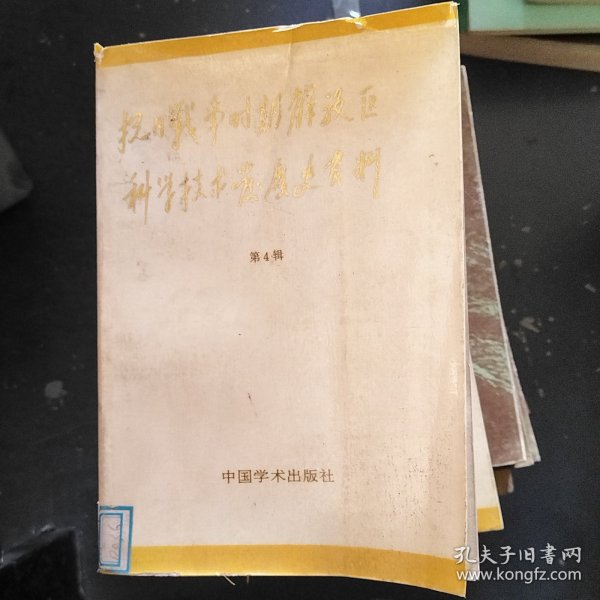 抗日战争时期解放区
科学技术发展史资料
第4辑
中国学术出版社
孔夫子旧书网
www.kongfz.com